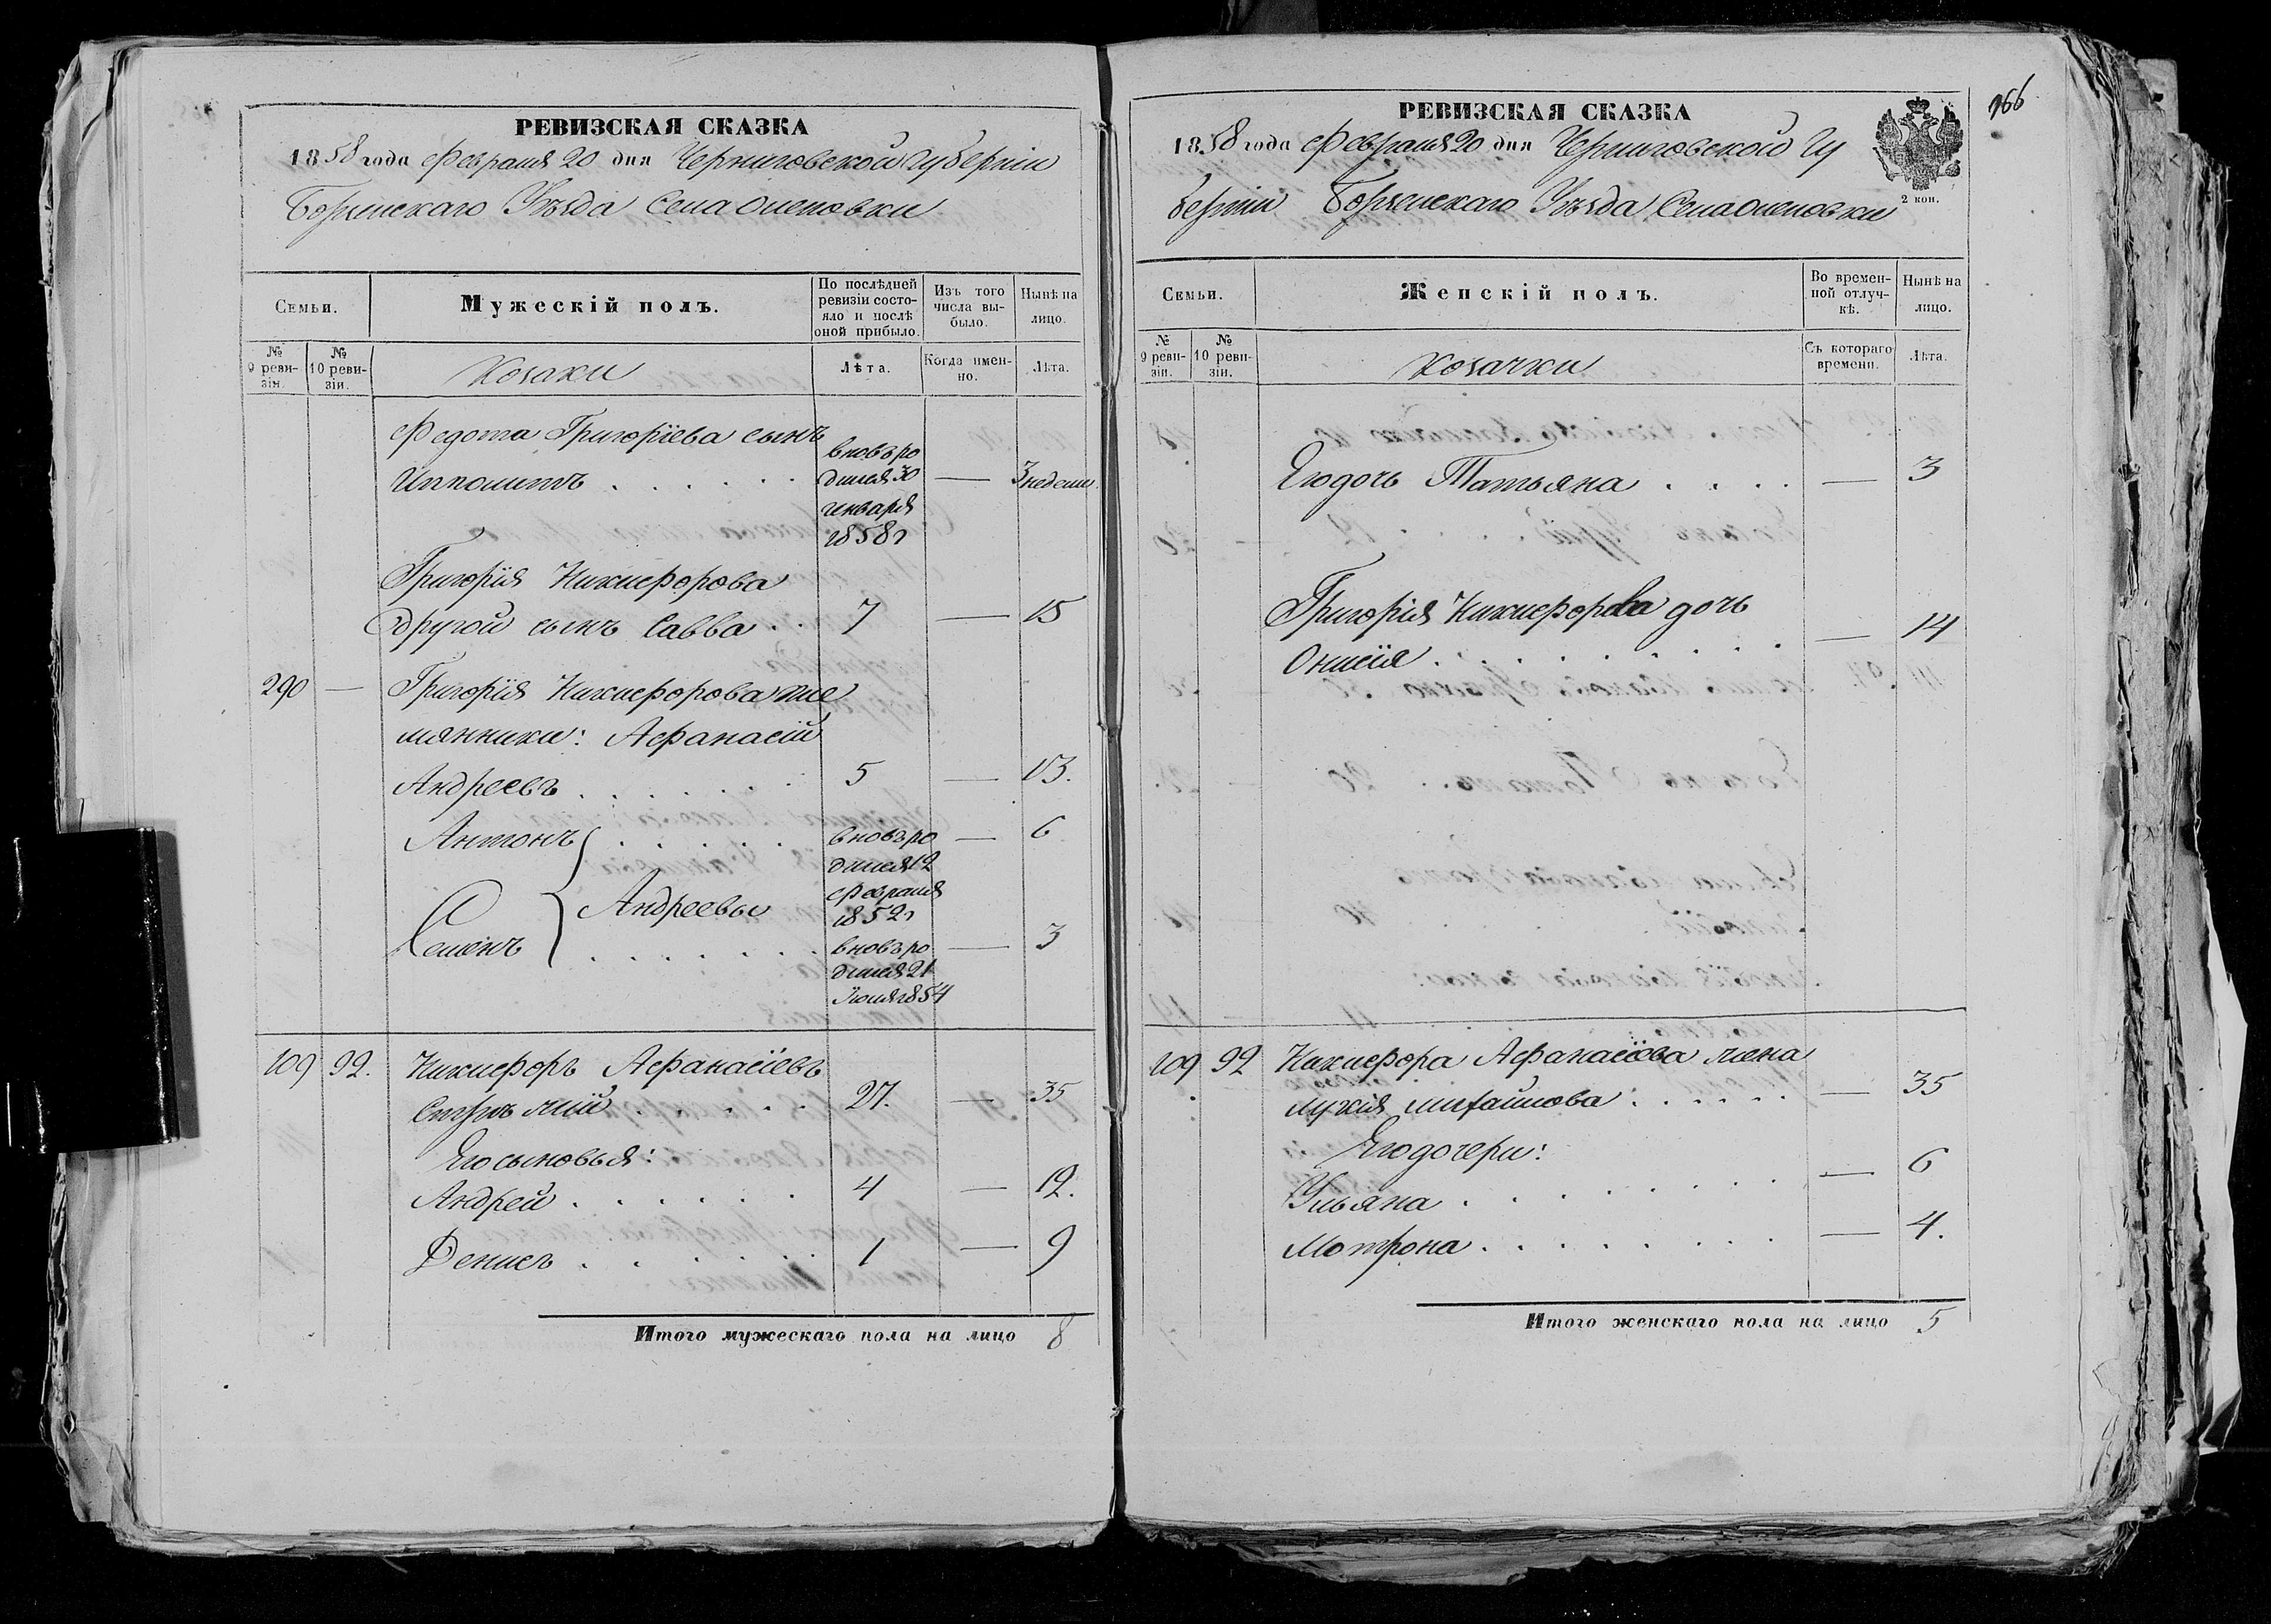 РЕВИЗСКАЯ СКАЗКА
1858 года Февраля 20 дня Черниговской губерніи
Борзенскаго Уѣзда Села Оленовки
Семьи.
Мужескій полъ.
По послѣдней ревизіи состояло и послѣ оной прибыло.
Изъ того числа выбыло.
Нынѣ на лицо.
№ 9 ревизіи.
№ 10 ревизіи.
Козаки
Лѣта.
Когда именно.
Лѣта.
Федота Григоріева сынъ
Ипполитъ . . . . . . вновь родился 30 генваря 1858г — 3 недели
Григорія Никифорова
другой сынъ Савва . . 7 — 15
290 — Григорія Никифорова пле
мянники: Афанасій
Андреевъ . . . . . . 5 — 13.
Антонъ . . . . . вновь родился 12 февраля 1852г — 6
Андреевы
Семенъ . . . . . . вновь родился 21 Іюля 1854 — 3
109 92. Никифоръ Афанасіевъ
. . . . . 27. — 35
Его сыновья:
Андрей . . . . . . 4 — 12.
Денисъ . . . . . . 1 — 9
Итого мужескаго пола на лицо 8
166
РЕВИЗСКАЯ СКАЗКА
1858 года Февраля 20 дня Черниговской Гу
берніи Борзенскаго Уѣзда Села Оленовки
2 коп.
Семьи.
Женскій полъ.
Во временной отлучкѣ.
Нынѣ на лицо.
№ 9 ревизіи.
№ 10 ревизіи.
Козачки
Съ котораго времени.
Лѣта.
Его дочь Татьяна . . . . — 3
Григорія Никифорова дочь
Онисія . . . . . . . . . — 14
109 92 Никифора Афанасіева жена
Лукія Михайлова . . . . . — 35
Его дочери:
Ульяна . . . . . . . . — 6
Мотрона . . . . . . . . — 4.
Итого женскаго пола на лицо 5